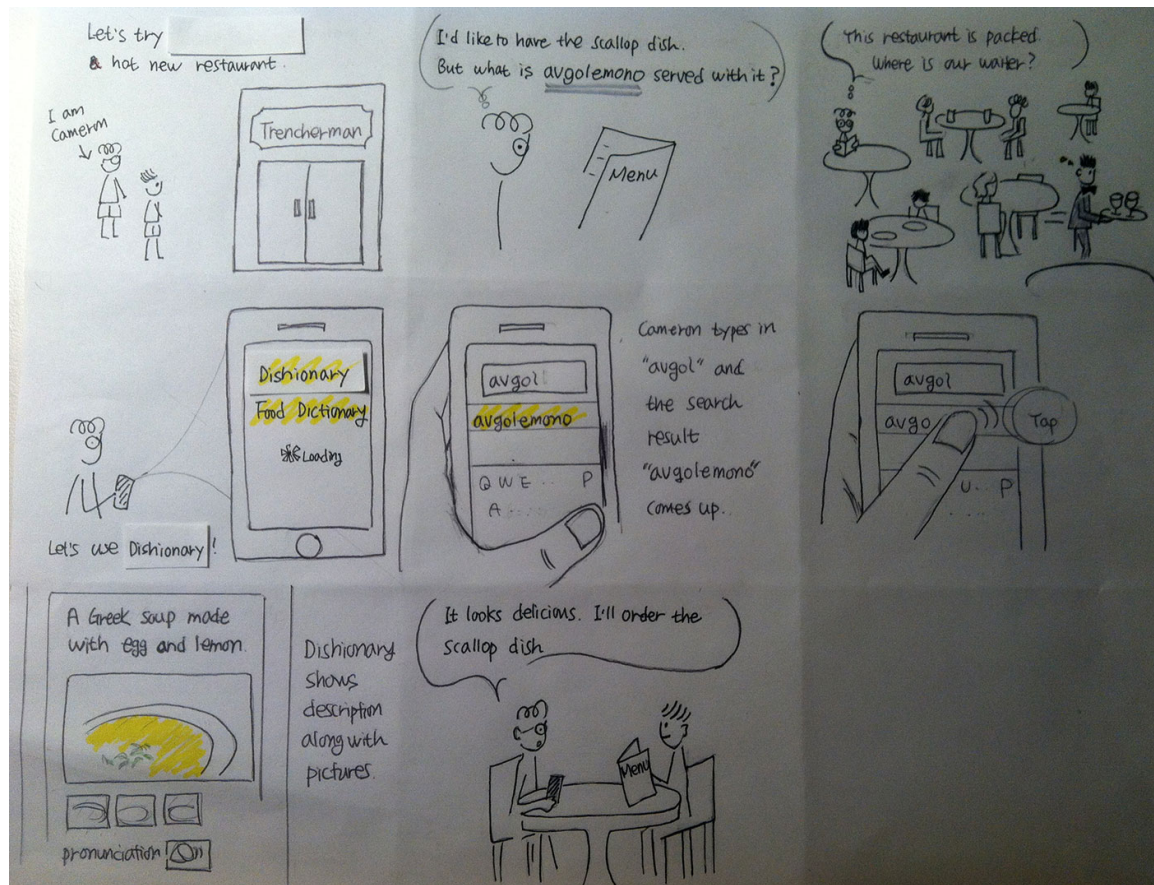 Let's try
a hot new restaurant.
I am
Cameron
Trencherman
I'd like to have the scallop dish.
But what is avgolemono served with it?
Menu
This restaurant is packed.
Where is our waiter?
Dishionary
Food Dictionary
Loading
Let's use Dishionary!
avgol
avgolemono
Q W E .. P
A .....
Cameron types in
"avgol" and
the search
result
"avgolemono"
comes up.
avgol
avgo
Tap
U... P
A Greek soup made
with egg and lemon.
pronunciation
Dishionary
shows
description
along with
pictures.
It looks delicious. I'll order the
scallop dish
Menu